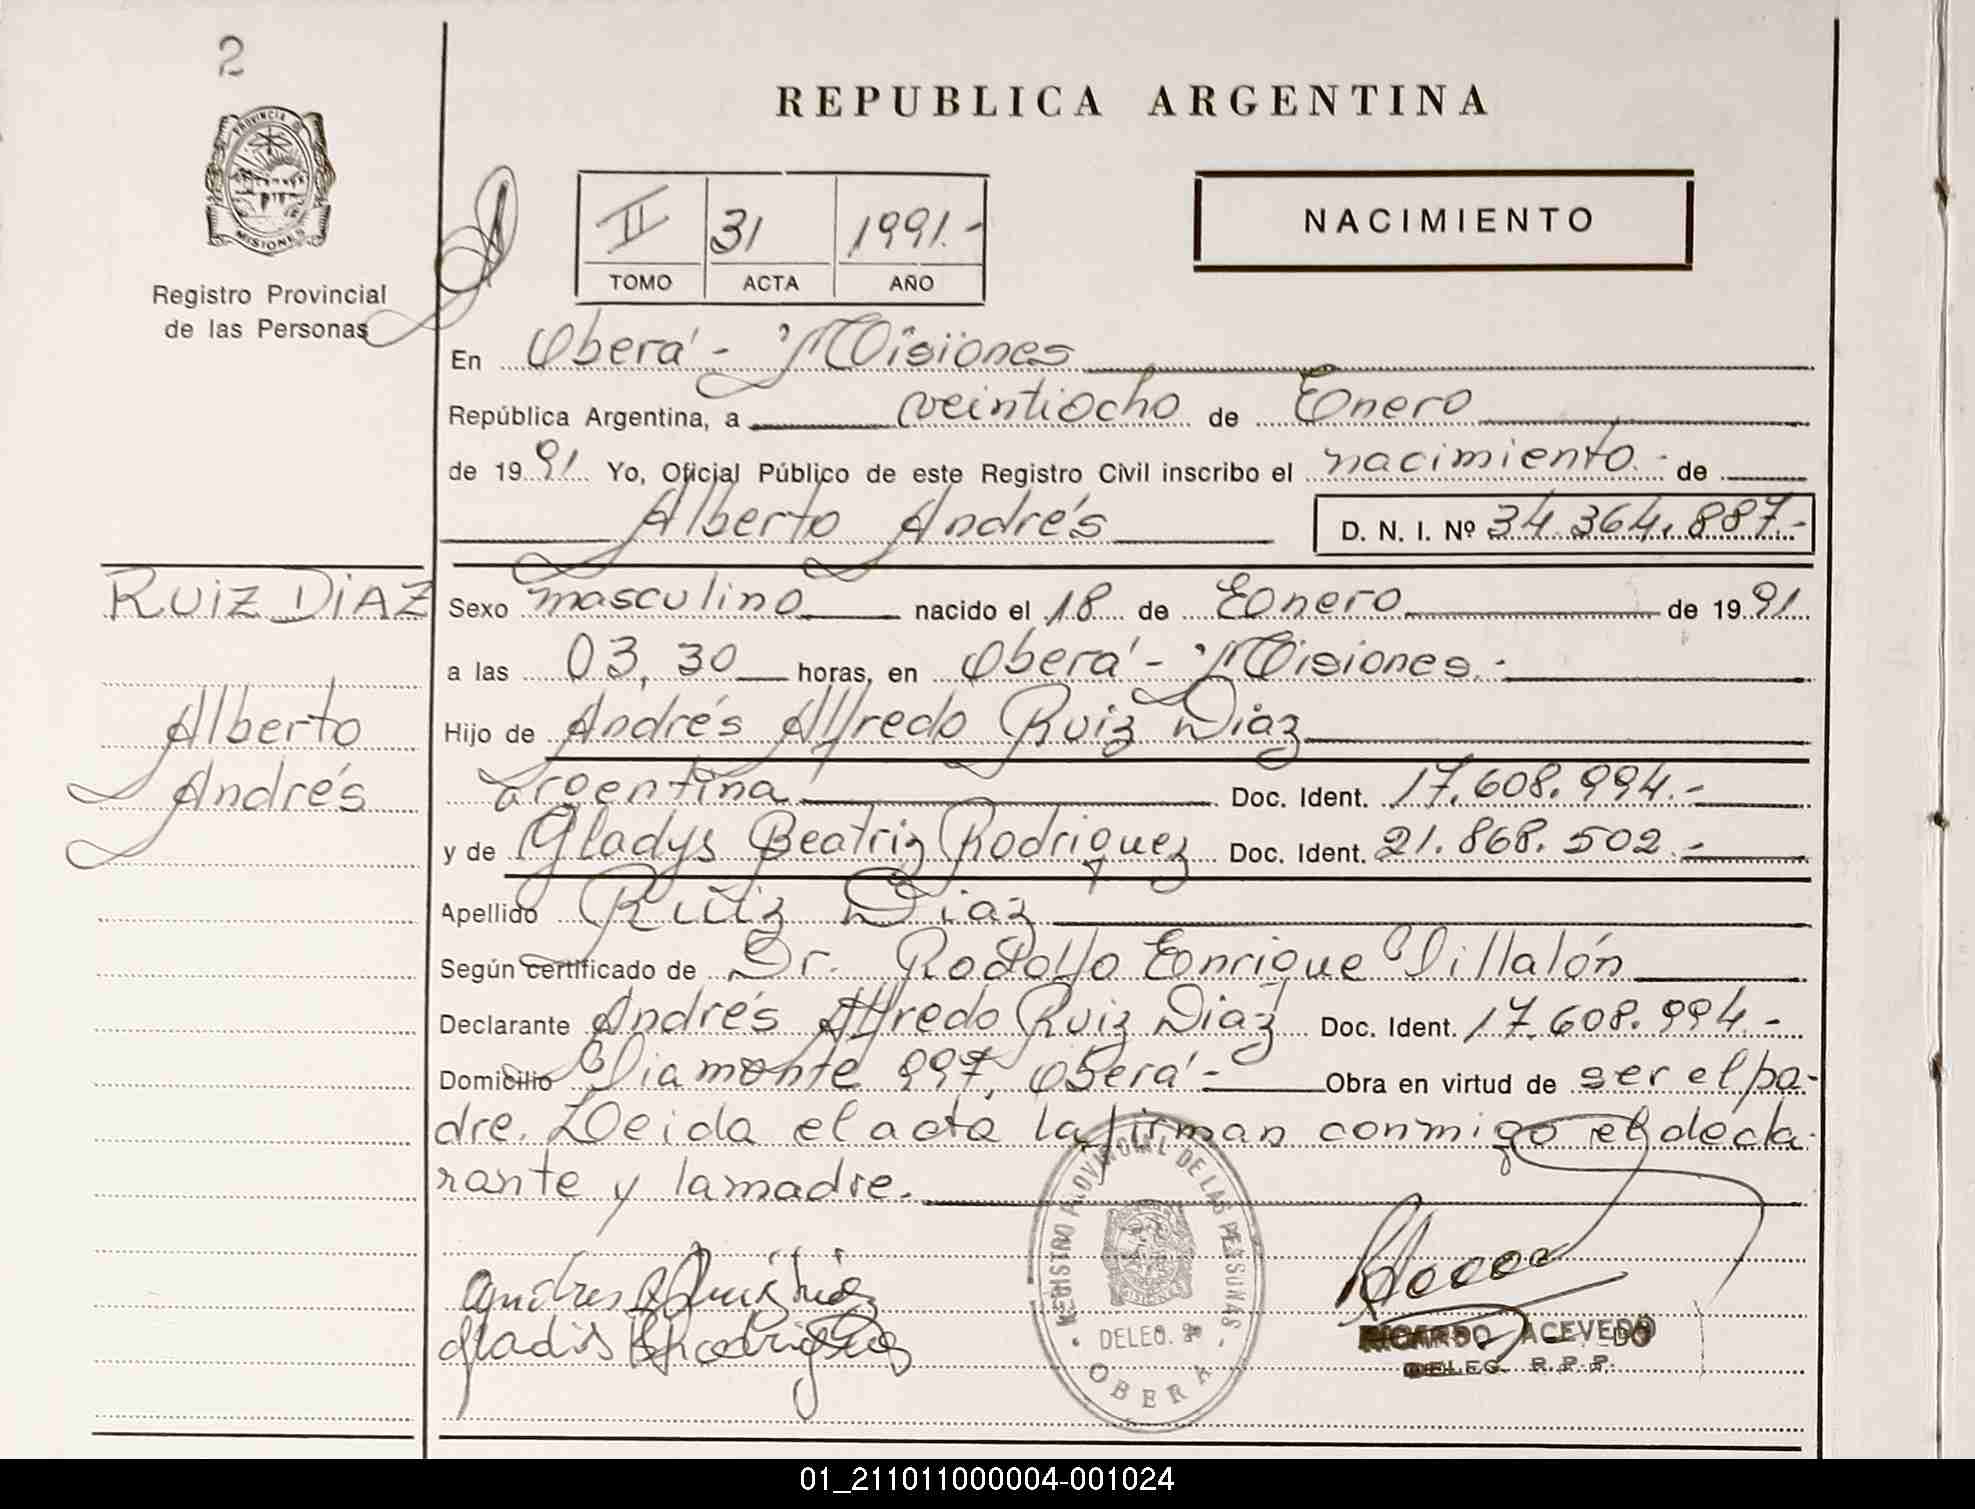 2
REPUBLICA ARGENTINA
PROVINCIA D
MISIONES
Registro Provincial
de las Personas
II 31 1991.-
TOMO ACTA AÑO
NACIMIENTO
En Oberá - Misiones
República Argentina, a veintiocho de Enero
de 1991 Yo, Oficial Público de este Registro Civil inscribo el nacimiento.- de
Alberto Andrés D. N. I. Nº 34.364.887.-
RUIZ DIAZ
Alberto
Andrés
Sexo masculino nacido el 18 de Enero de 1991
a las 03,30 horas, en Oberá - Misiones.-
Hijo de Andrés Alfredo Ruiz Diaz
argentina Doc. Ident. 17.608.994.-
y de Gladys Beatriz Rodriguez Doc. Ident. 21.868.502.-
Apellido Ruiz Diaz
Según certificado de Dr. Rodolfo Enrique Villalón
Declarante Andrés Alfredo Ruiz Diaz Doc. Ident. 17.608.994.-
Domicilio Diamante 997, Oberá - Obra en virtud de ser el pa-
dre. Leida el acta la firman conmigo el decla-
rante y la madre.
REGISTRO PROVINCIAL DE LAS PERSONAS
DELEG.
OBERA
Andres A Ruiz Diaz
Gladis B Rodriguez
RICARDO ACEVEDO
DELEG. R.P.P.
01_211011000004-001024